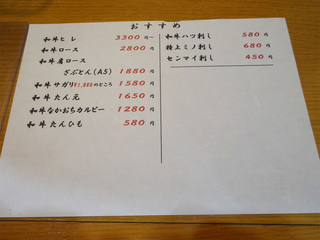 おすすめ
和牛ヒレ 3300円〜
和牛ロース 2800円
和牛肩ロース
ざぶとん(A5) 1880円
和牛サガリ¥1,880のところ 1580円
和牛たん元 1650円
和牛なかおちカルビー 1280円
和牛たんひも 580円
和牛ハツ刺し 580円
特上ミノ刺し 680円
センマイ刺し 450円